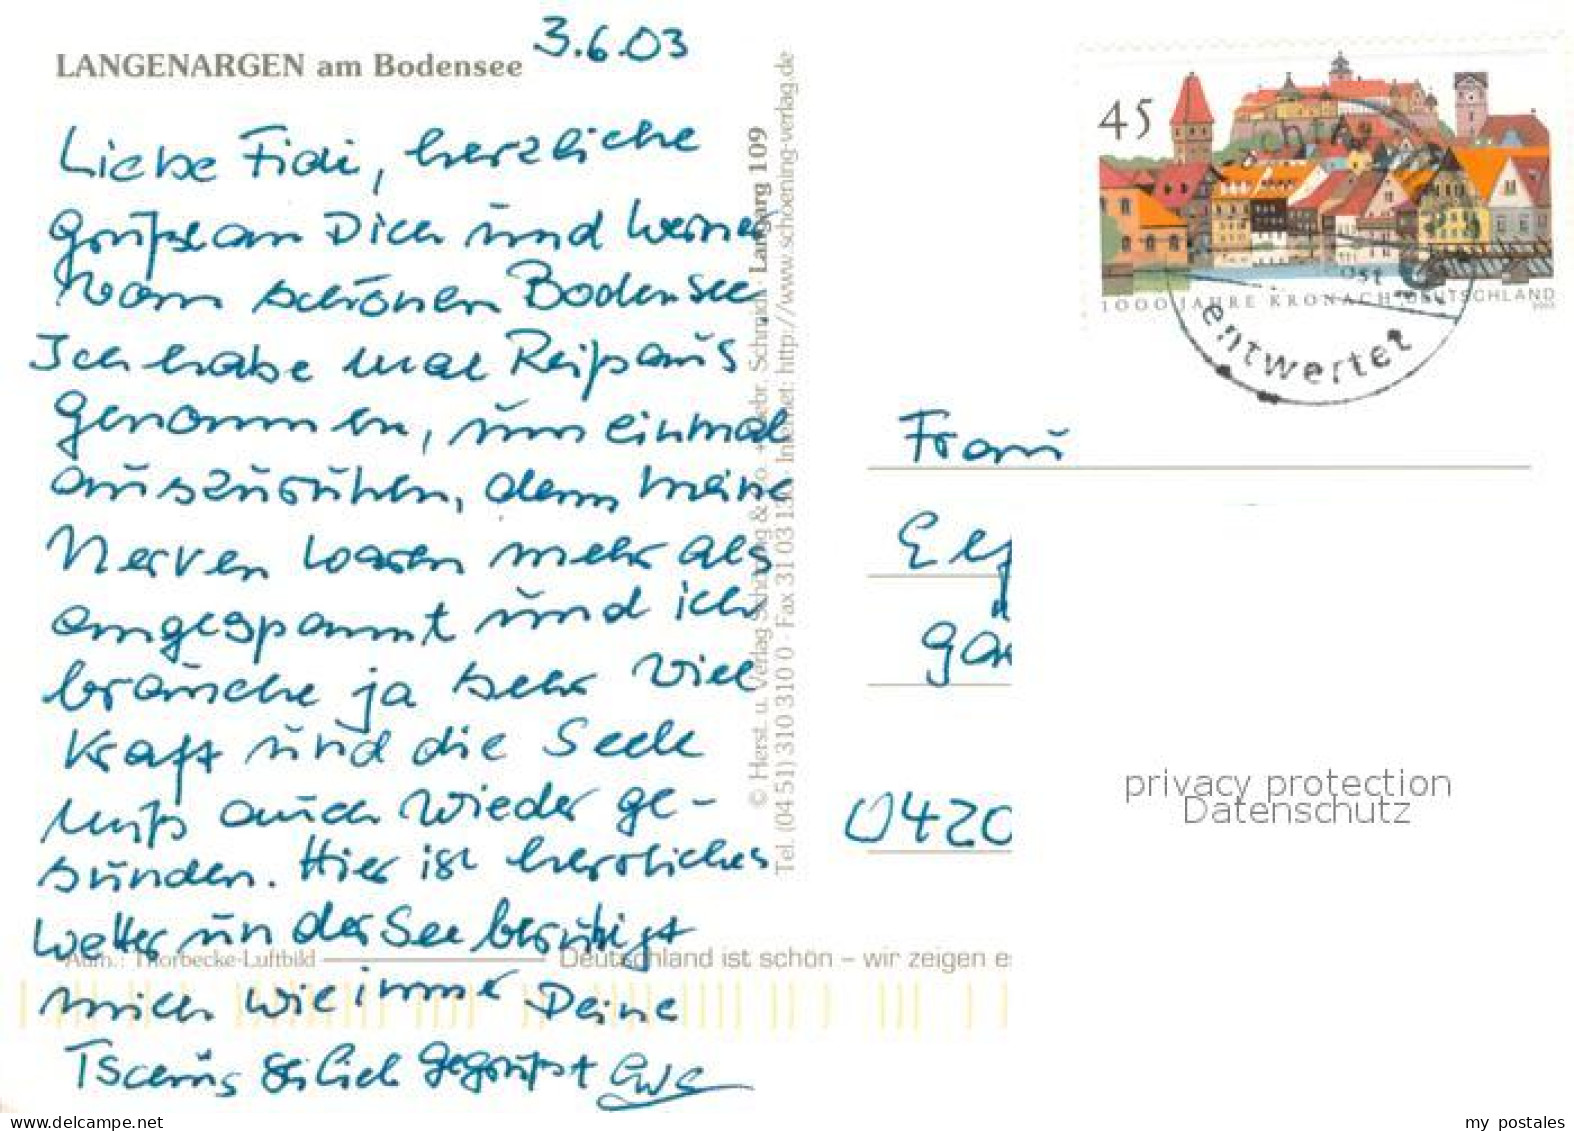 3.6.03
LANGENARGEN am Bodensee
Liebe Fidi, herzliche
Grüße an Dich und Werner
Vom schönen Bodensee.
Ich habe mal Reißaus
genommen, um einmal
auszuruhen, denn meine
Nerven waren mehr als
angespannt und ich
brauche ja sehr viel
Kraft und die Seele
muß auch wieder ge-
sunden. Hier ist herrliches
Wetter un der See beruhigt
mich wie immer Deine
Tschüs sei lieb gegrüßt
Aufn.: Thorbecke-Luftbild
Deutschland ist schön – wir zeigen es
© Herst. u. Verlag Schöning & Co. + Gebr. Schmidt · Langarg 109
Tel. (04 51) 310 310 0 · Fax 31 03 130 · Internet: http://www.schoening-verlag.de
45
1000 JAHRE KRONACH DEUTSCHLAND
entwertet
Frau
0420
privacy protection
Datenschutz
my postales